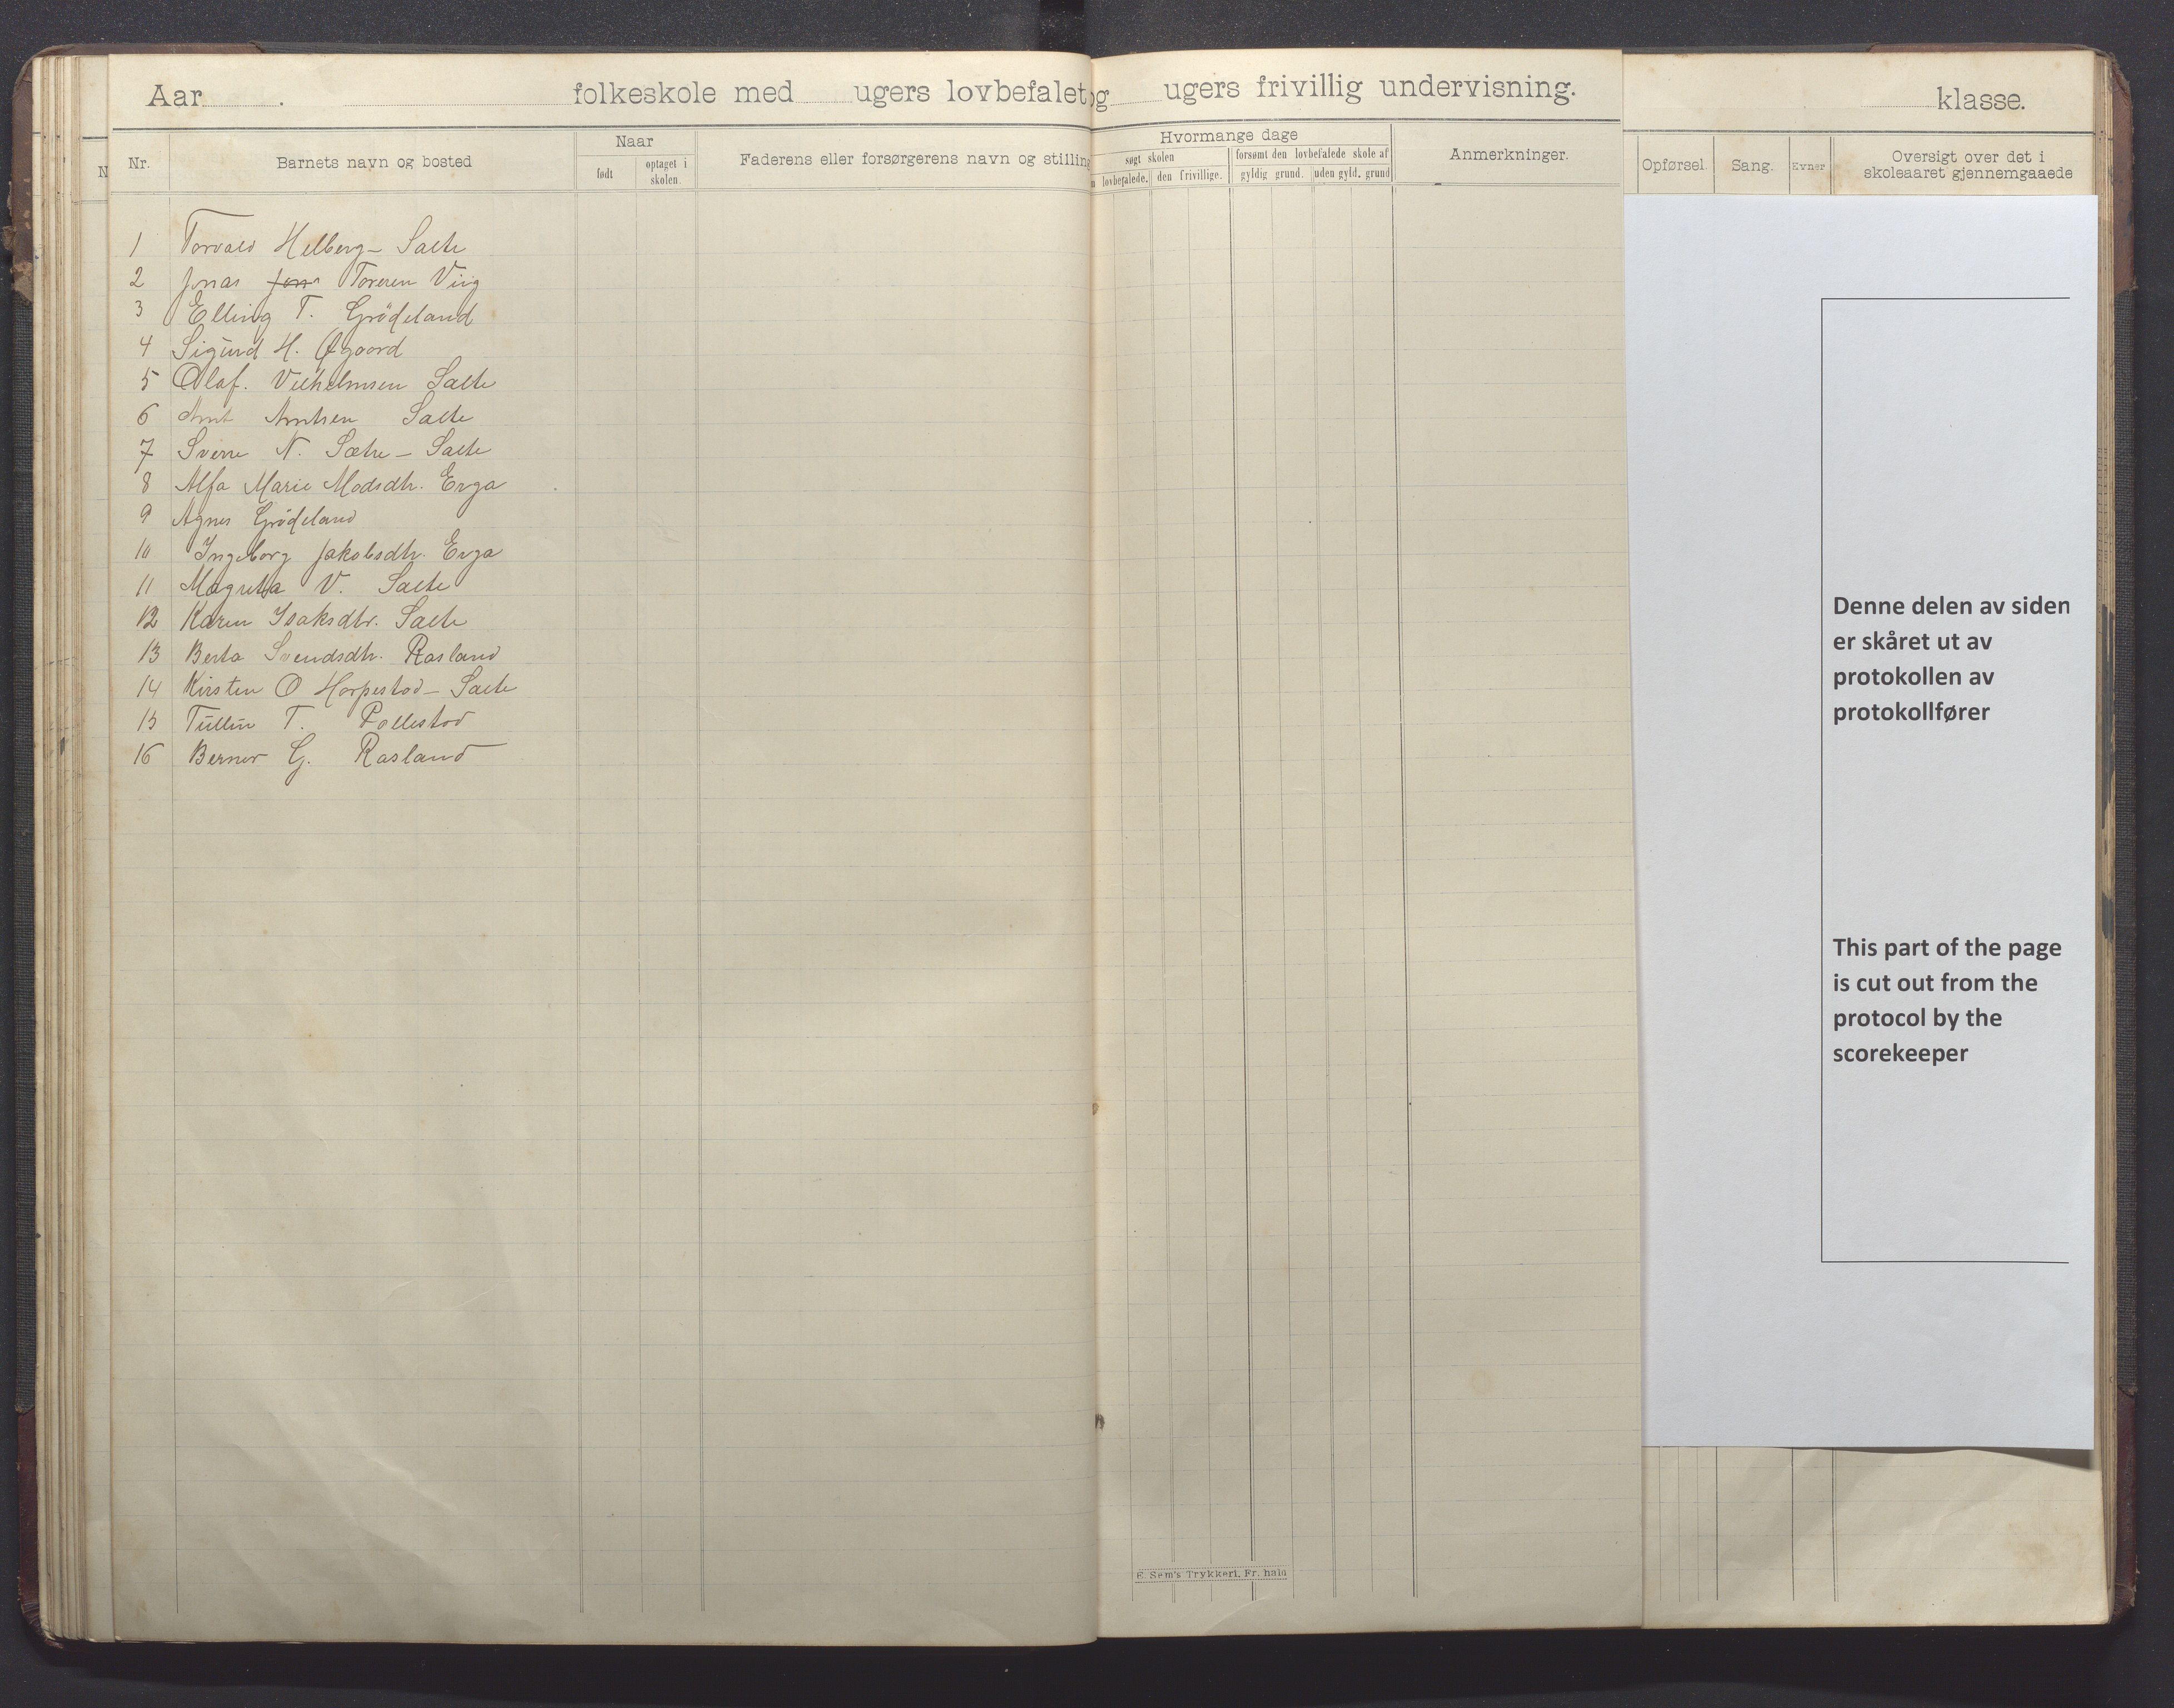 Aar . folkeskole med ugers lovbefalet og ugers frivillig undervisning. klasse.
Nr. Barnets navn og bosted Naar Faderens eller forsørgerens navn og stilling Hvormange dage Anmerkninger. Opførsel. Sang. Evner Oversigt over det i skoleaaret gjennemgaaede
født optaget i skolen. søgt skolen forsømt den lovbefalede skole af
lovbefalede. den frivillige. gyldig grund. uden gyld. grund
N
1 Torvald Helberg - Salte
2 Jonas Jons Toresen Viig
3 Elling T. Grödeland
4 Sigurd H. Øgaard
5 Olaf. Vilhelmsen Salte
6 Arnt Arntsen Salte
7 Sverre N. Sætre - Salte
8 Alfa Marie Madsdtr. Erga
9 Agnes Grödeland
10 Ingeborg Jakobsdtr. Erga
11 Magretha V. Salte
12 Karen Isaksdtr. Salte
13 Berta Svendsdtr. Rasland
14 Kirsten O Harpestad - Salte
15 Tullin T. Pollestad
16 Berner G. Rasland
E. Sem's Trykkeri, Fr. hald
Denne delen av siden
er skåret ut av
protokollen av
protokollfører
This part of the page
is cut out from the
protocol by the
scorekeeper